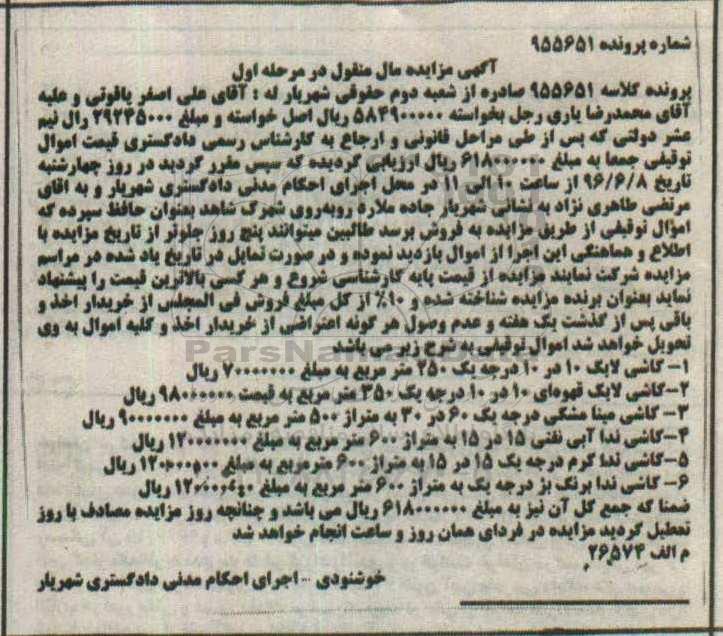 شماره پرونده ۹۵۵۶۵۱
آگهی مزایده مال منقول در مرحله اول
پرونده کلاسه ۹۵۵۶۵۱ صادره از شعبه دوم حقوقی شهریار له : آقای علی اصغر یاقوتی و علیه
آقای محمدرضا یاری رجل بخواسته ۵۸۴۹۰۰۰۰۰ ریال اصل خواسته و مبلغ ۲۹۲۴۵۰۰۰ رال نیم
عشر دولتی که پس از طی مراحل قانونی و ارجاع به کارشناس رسمی دادگستری قیمت اموال
توقیفی جمعا به مبلغ ۶۱۸۰۰۰۰۰۰ ریال ارزیابی گردیده که سپس مقرر گردید در روز چهارشنبه
تاریخ ۹۶/۶/۸ از ساعت ۱۰ الی ۱۱ در محل اجرای احکام مدنی دادگستری شهریار و به اقای
مرتضی طاهری نژاد به نشانی شهریار جاده ملارد روبه‌روی شهرک شاهد بعنوان حافظ سپرده که
اموال توقیفی از طریق مزایده به فروش برسد طالبین میتوانند پنج روز جلوتر از تاریخ مزایده با
اطلاع و هماهنگی این اجرا از اموال بازدید نموده و در صورت تمایل در تاریخ یاد شده در مراسم
مزایده شرکت نمایند مزایده از قیمت پایه کارشناسی شروع و هر کسی بالاترین قیمت را پیشنهاد
نماید بعنوان برنده مزایده شناخته شده و ۱۰٪ از کل مبلغ فروش فی المجلس از خریدار اخذ و
باقی پس از گذشت یک هفته و عدم وصول هر گونه اعتراضی از خریدار اخذ و کلیه اموال به وی
تحویل خواهد شد اموال توقیفی به شرح زیر می باشد
ParsNamadData
۱-کاشی لایک ۱۰ در ۱۰ درجه یک ۲۵۰ متر مربع به مبلغ ۷۰۰۰۰۰۰۰ ریال
۲-کاشی لایک قهوه‌ای ۱۰ در ۱۰ درجه یک ۳۵۰ متر مربع به قیمت ۹۸۰۰۰۰۰۰ ریال
۳-کاشی مینا مشکی درجه یک ۶۰ در ۳۰ به متراژ ۵۰۰ متر مربع به مبلغ ۹۰۰۰۰۰۰۰ ریال
۴-کاشی ندا آبی نفتی ۱۵ در ۱۵ به متراژ ۶۰۰ متر مربع به مبلغ ۱۲۰۰۰۰۰۰۰ ریال
۵-کاشی ندا کرم درجه یک ۱۵ در ۱۵ به متراژ ۶۰۰ متر مربع به مبلغ ۱۲۰۰۰۰۰۰۰ ریال
۶-کاشی ندا برنگ بژ درجه یک به متراژ ۶۰۰ متر مربع به مبلغ ۱۲۰۰۰۰۰۰۰ ریال
ضمنا که جمع کل آن نیز به مبلغ ۶۱۸۰۰۰۰۰۰ ریال می باشد و چنانچه روز مزایده مصادف با روز
تعطیل گردید مزایده در فردای همان روز و ساعت انجام خواهد شد
م الف ۲۶,۵۷۴
خوشنودی - اجرای احکام مدنی دادگستری شهریار